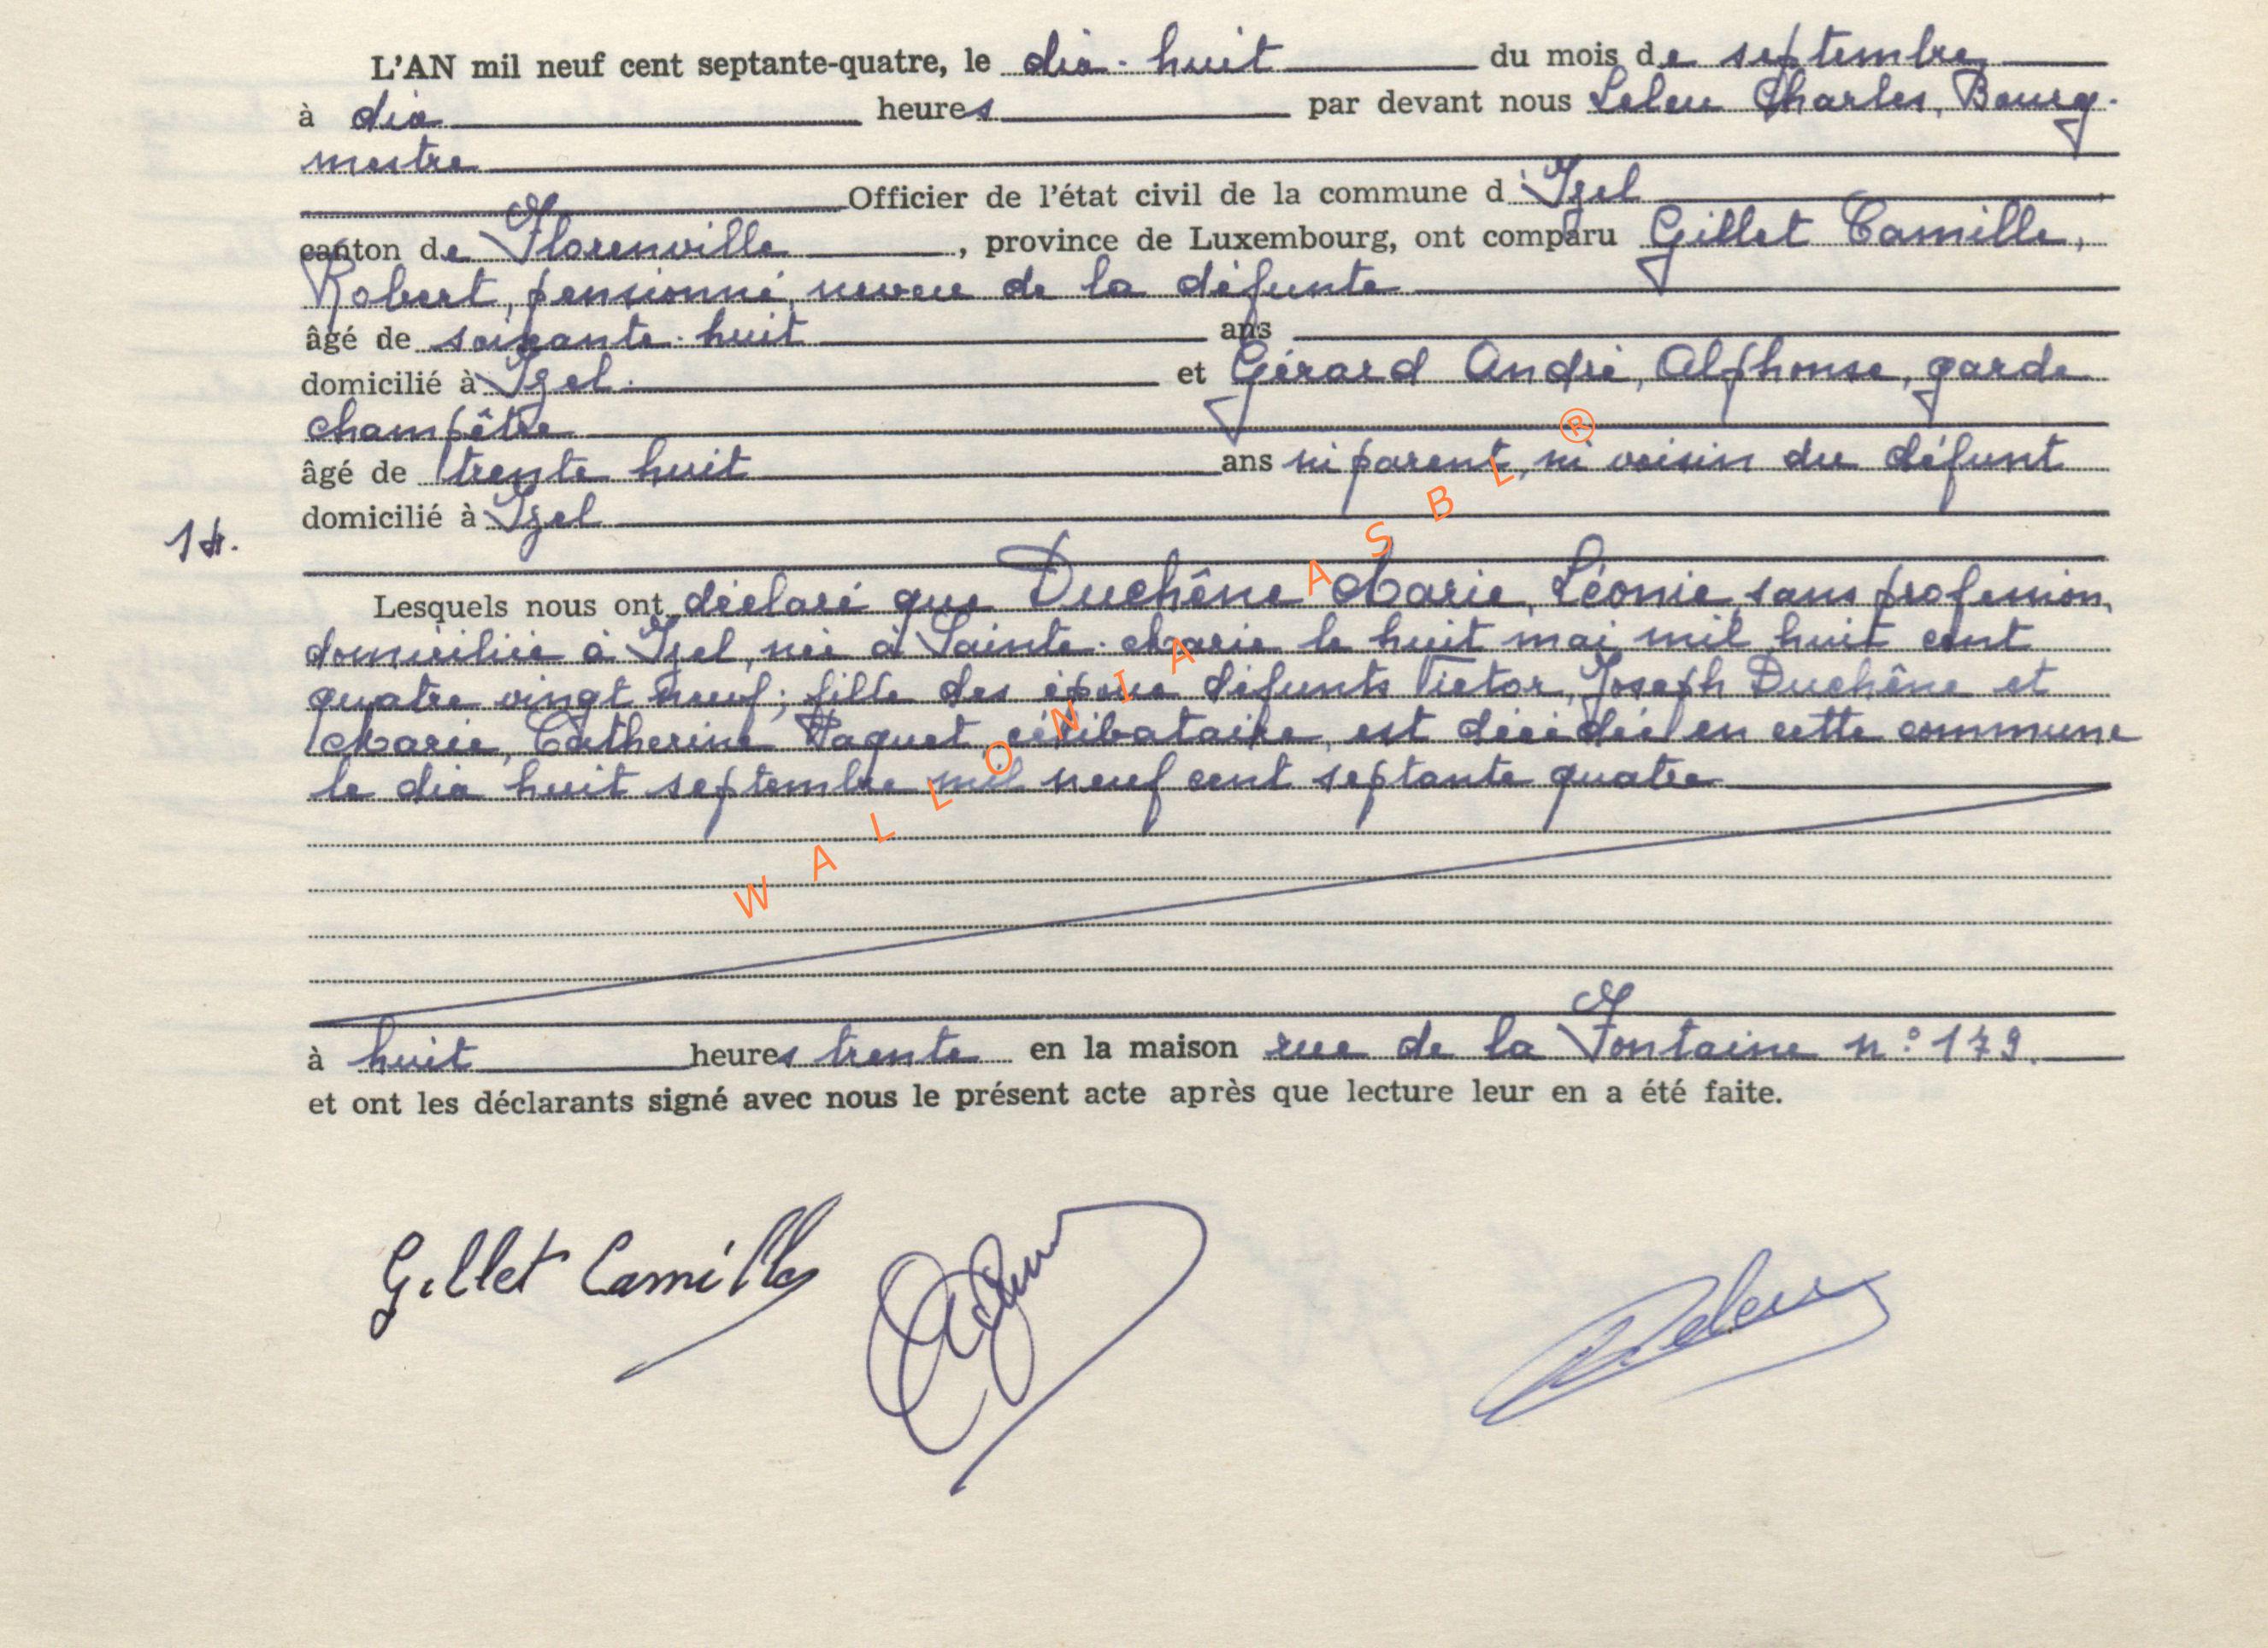 L'AN mil neuf cent septante-quatre, le dix-huit du mois de septembre
à dix heures par devant nous Leleu Charles, Bourg-
mestre
Officier de l'état civil de la commune d'Izel
canton de Florenville, province de Luxembourg, ont comparu Gillet Camille,
Robert, pensionné, neveu de la défunte
âgé de soixante-huit ans
domicilié à Izel. et Gérard André, Alphonse, garde
champêtre
âgé de trente huit ans ni parent, ni voisin du défunt
domicilié à Izel
14.
Lesquels nous ont déclaré que Duchêne Marie, Léonie, sans profession,
domiciliée à Izel, née à Sainte-Marie le huit mai mil huit cent
quatre vingt neuf; fille des époux défunts Victor, Joseph Duchêne et
Marie, Catherine Paquet, célibataire, est décédée en cette commune
le dix huit septembre mil neuf cent septante quatre
à huit heures trente en la maison rue de la Fontaine n° 179.
et ont les déclarants signé avec nous le présent acte après que lecture leur en a été faite.
Gillet Camille
Leleu
WALLONIA ASBL ®